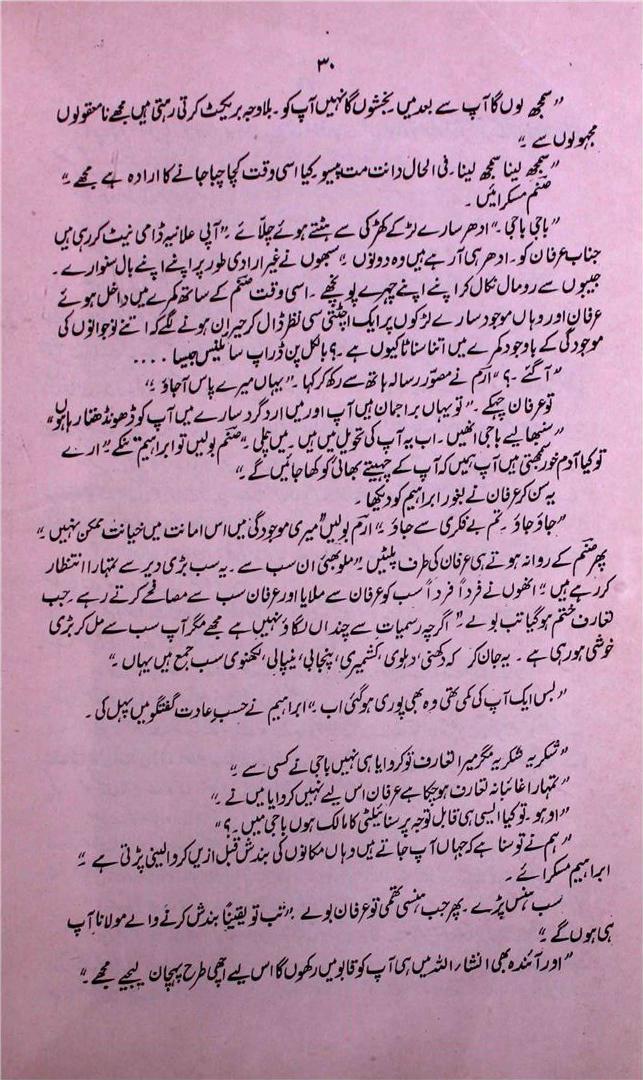 ۳۰
"سمجھ لوں گا آپ سے بعد میں بخشوں گا نہیں آپ کو۔ بلاوجہ بریکٹ کرتی رہتی ہیں مجھے نامعقولوں
مجہولوں سے۔"
"سمجھ لینا سمجھ لینا۔ فی الحال دانت مت پیسو۔ کیا اسی وقت کچا چبا جانے کا ارادہ ہے مجھے۔"
صنم مسکرائیں۔
"باجی باجی۔" ادھر سارے لڑکے کھڑکی سے ہٹتے ہوئے چلّائے۔ "آپی علانیہ ڈامی نیٹ کر رہی ہیں
جناب عرفان کو۔ ادھر ہی آ رہے ہیں وہ دونوں۔" سبھوں نے غیر ارادی طور پر اپنے اپنے بال سنوارے۔
جیبوں سے رومال نکال کر اپنے اپنے چہرے پونچھے۔ اسی وقت صنم کے ساتھ کمرے میں داخل ہوئے
عرفان اور وہاں موجود سارے لڑکوں پر ایک اچٹتی سی نظر ڈال کر حیران ہونے لگے کہ اتنے نوجوانوں کی
موجودگی کے باوجود کمرے میں اتنا سناٹا کیوں ہے۔؟ بالکل پن ڈراپ سائلینس جیسا ....
"آ گئے۔؟" ارم نے مصوّر رسالہ ہاتھ سے رکھ کر کہا۔ "یہاں میرے پاس آجاؤ۔"
تو عرفان چہکے۔ "تو یہاں براجمان ہیں آپ اور میں ارد گرد سارے میں آپ کو ڈھونڈھتا رہا ہوں"
"سنبھالیے باجی انھیں۔ اب یہ آپ کی تحویل میں ہیں۔ میں چلی۔" صنم بولیں تو ابراہیم تنکے۔ "ارے
تو کیا آدم خور سمجھتی ہیں آپ ہمیں کہ آپ کے چہیتے بھائی کو کھا جائیں گے۔"
یہ سن کر عرفان نے بغور ابراہیم کو دیکھا۔
"جاؤ جاؤ۔ تم بے فکری سے جاؤ۔" ارم بولیں "میری موجودگی میں اس امانت میں خیانت ممکن نہیں۔"
پھر صنم کے روانہ ہوتے ہی عرفان کی طرف پلٹیں "ملو بھئی ان سب سے۔ یہ سب بڑی دیر سے تمہارا انتظار
کر رہے ہیں۔" انھوں نے فرداً فرداً سب کو عرفان سے ملایا اور عرفان سب سے مصافحے کرتے رہے۔ جب
تعارف ختم ہو گیا تب بولے۔ "اگرچہ رسمیات سے چنداں لگاؤ نہیں ہے مجھے مگر آپ سب سے مل کر بڑی
خوشی ہو رہی ہے۔ یہ جان کر کہ دکھنی، دہلوی، کشمیری، پنجابی، نیپالی، لکھنوی سب جمع ہیں یہاں۔"
"بس ایک آپ کی کمی تھی وہ بھی پوری ہو گئی اب۔" ابراہیم نے حسبِ عادت گفتگو میں پہل کی۔
"شکریہ شکریہ مگر میرا تعارف تو کروایا ہی نہیں باجی نے کسی سے۔"
"تمہارا غائبانہ تعارف ہو چکا ہے عرفان اس لیے نہیں کروایا میں نے۔"
"اوہو۔ تو کیا ایسی ہی قابل توجہ پرسنالیٹی کا مالک ہوں باجی میں۔؟"
"ہم نے تو سنا ہے کہ جہاں آپ جاتے ہیں وہاں مکانوں کی بندش قبل ازیں کروا لینی پڑتی ہے۔"
ابراہیم مسکرائے۔
سب ہنس پڑے۔ پھر جب ہنسی تھمی تو عرفان بولے۔ "تب تو یقیناً بندش کرنے والے مولانا آپ
ہی ہوں گے۔"
"اور آئندہ بھی انشاء اللہ میں ہی آپ کو قابو میں رکھوں گا اس لیے اچھی طرح پہچان لیجیے مجھے۔"